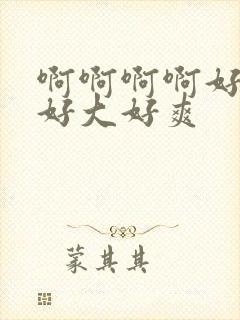 啊啊啊啊好
好大好爽
蒙其其